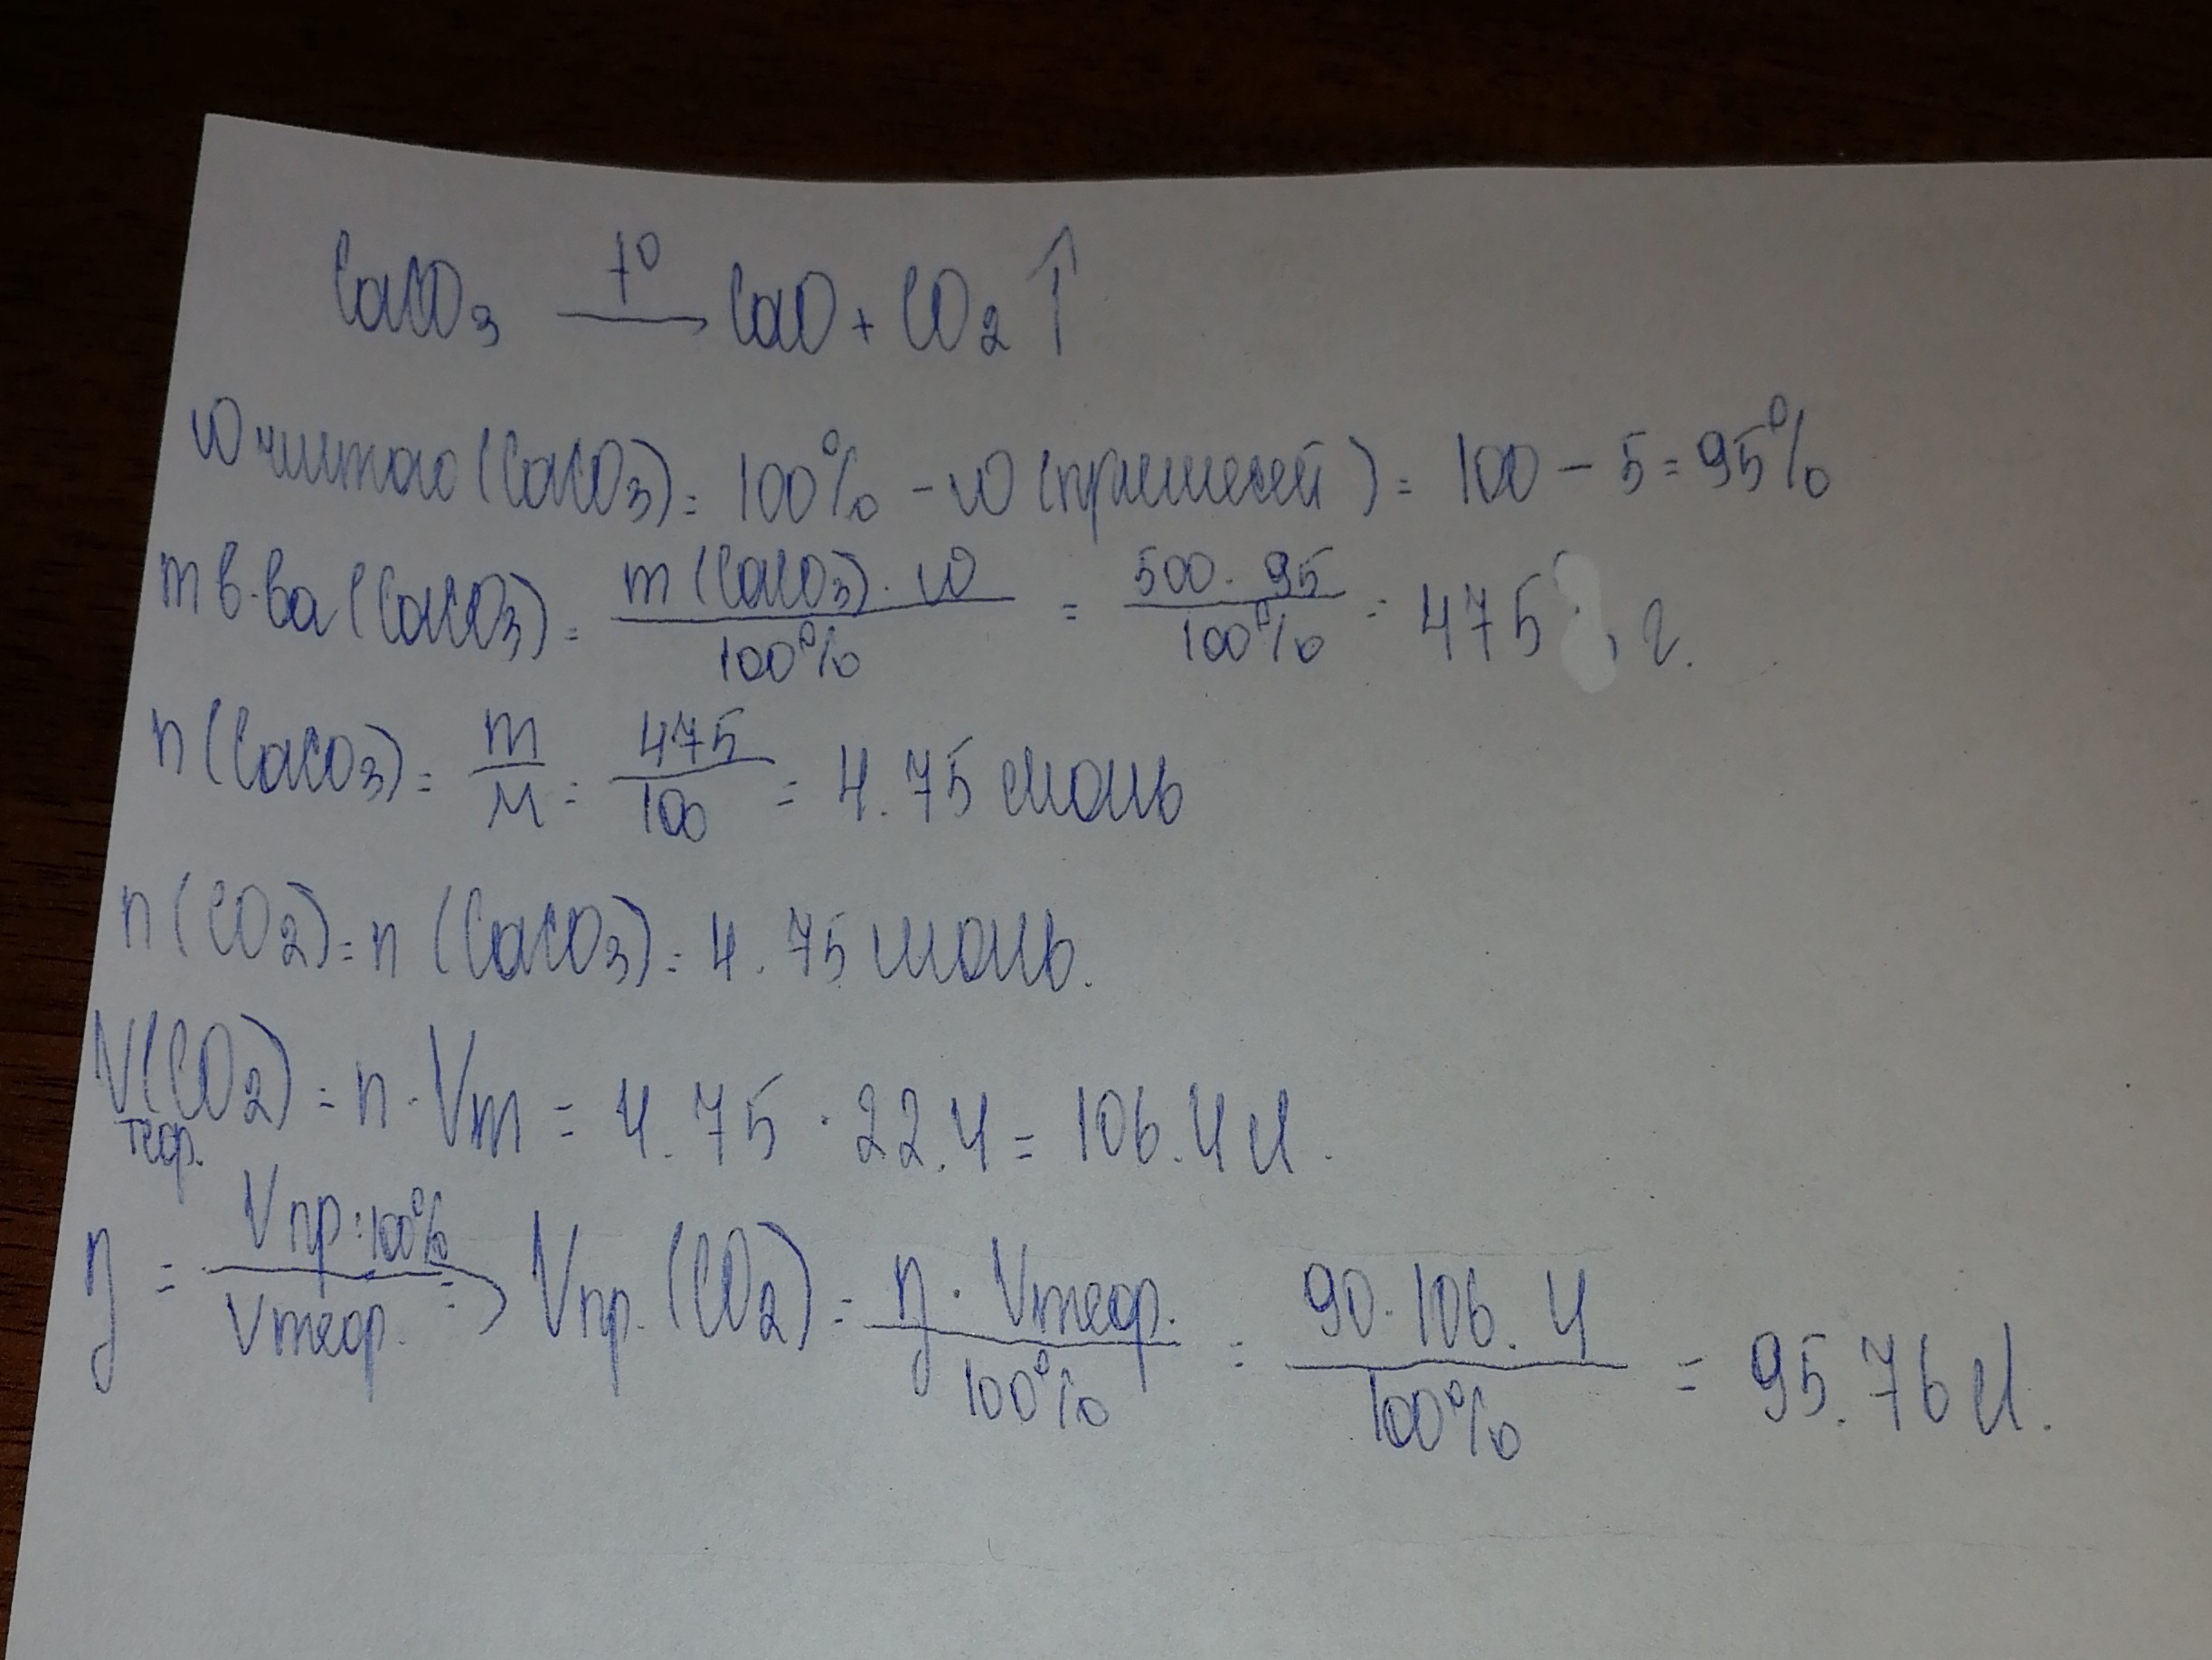 CaCO₃ —t°→ CaO + CO₂ ↑
ω чистого (CaCO₃) = 100% - ω (примесей) = 100 - 5 = 95%
m в-ва (CaCO₃) = m (CaCO₃) · ω / 100% = 500 · 95 / 100% = 475 г.
n (CaCO₃) = m / M = 475 / 100 = 4.75 моль
n (CO₂) = n (CaCO₃) = 4.75 моль.
V(CO₂) теор. = n · Vm = 4.75 · 22.4 = 106.4 л.
η = Vпр · 100% / Vтеор. => Vпр. (CO₂) = η · Vтеор. / 100% = 90 · 106.4 / 100% = 95.76 л.